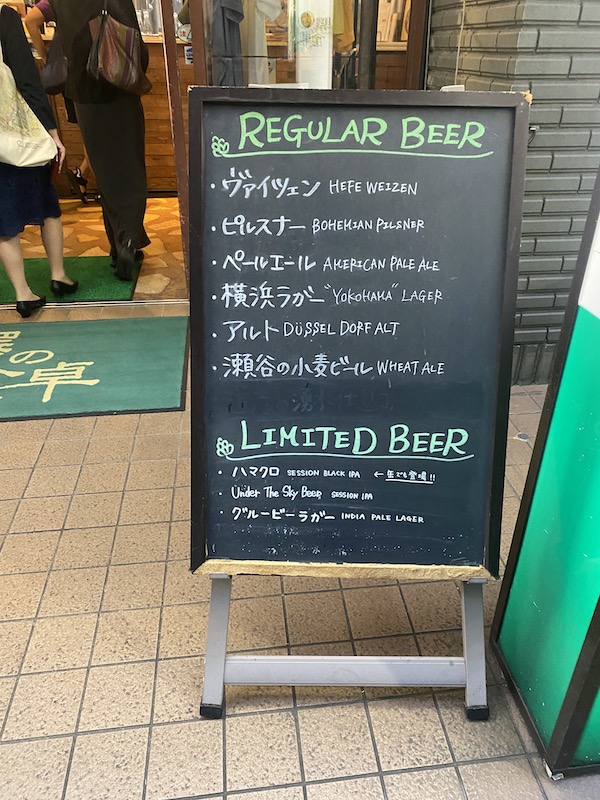 REGULAR BEER
・ヴァイツェン HEFE WEIZEN
・ピルスナー BOHEMIAN PILSNER
・ペールエール AMERICAN PALE ALE
・横浜ラガー "YOKOHAMA" LAGER
・アルト DÜSSEL DORF ALT
・瀬谷の小麦ビール WHEAT ALE
LIMITED BEER
・ハマクロ SESSION BLACK IPA ← 缶でも登場!!
・Under The Sky Beer SESSION IPA
・グルービーラガー INDIA PALE LAGER
の
食卓